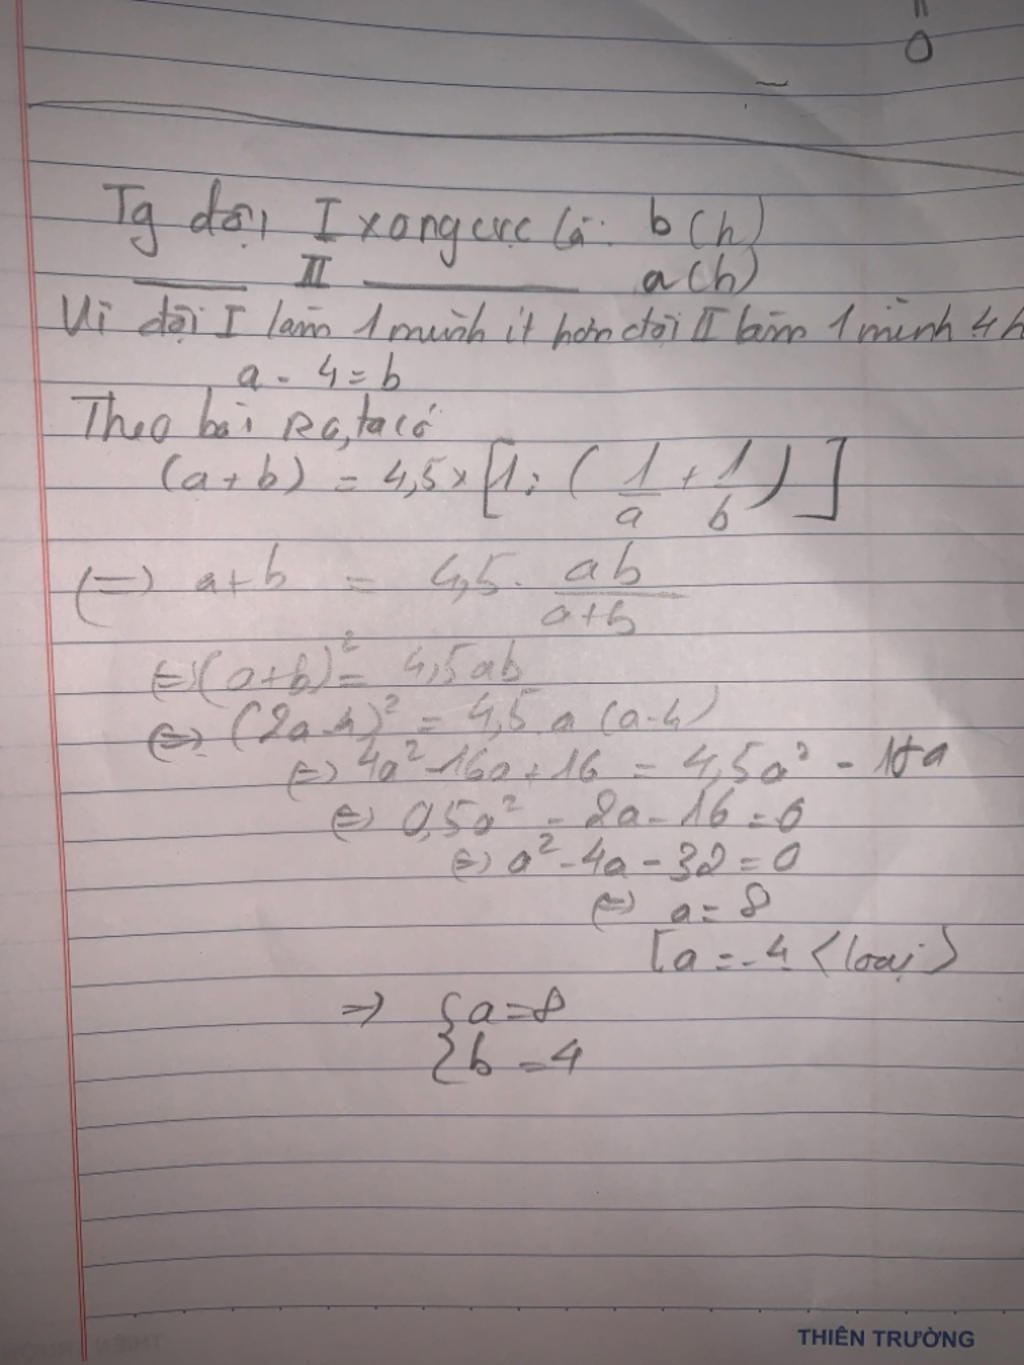 "
0
Tg đội I xong cv là: b (h)
____ II ________ a (h)
Vì đội I làm 1 mình ít hơn đội II làm 1 mình 4h
a - 4 = b
Theo bài Ra, ta có
(a + b) = 4,5 × [1 : (1/a + 1/b)]
(=) a + b = 4,5 . ab/(a+b)
(=) (a+b)² = 4,5ab
(=) (2a - 4)² = 4,5.a (a-4)
(=) 4a² - 16a + 16 = 4,5a² - 18a
(=) 0,5a² - 2a - 16 = 0
(=) a² - 4a - 32 = 0
(=) a = 8
[a = -4 <loại>
=> { a = 8
{ b = 4
THIÊN TRƯỜNG